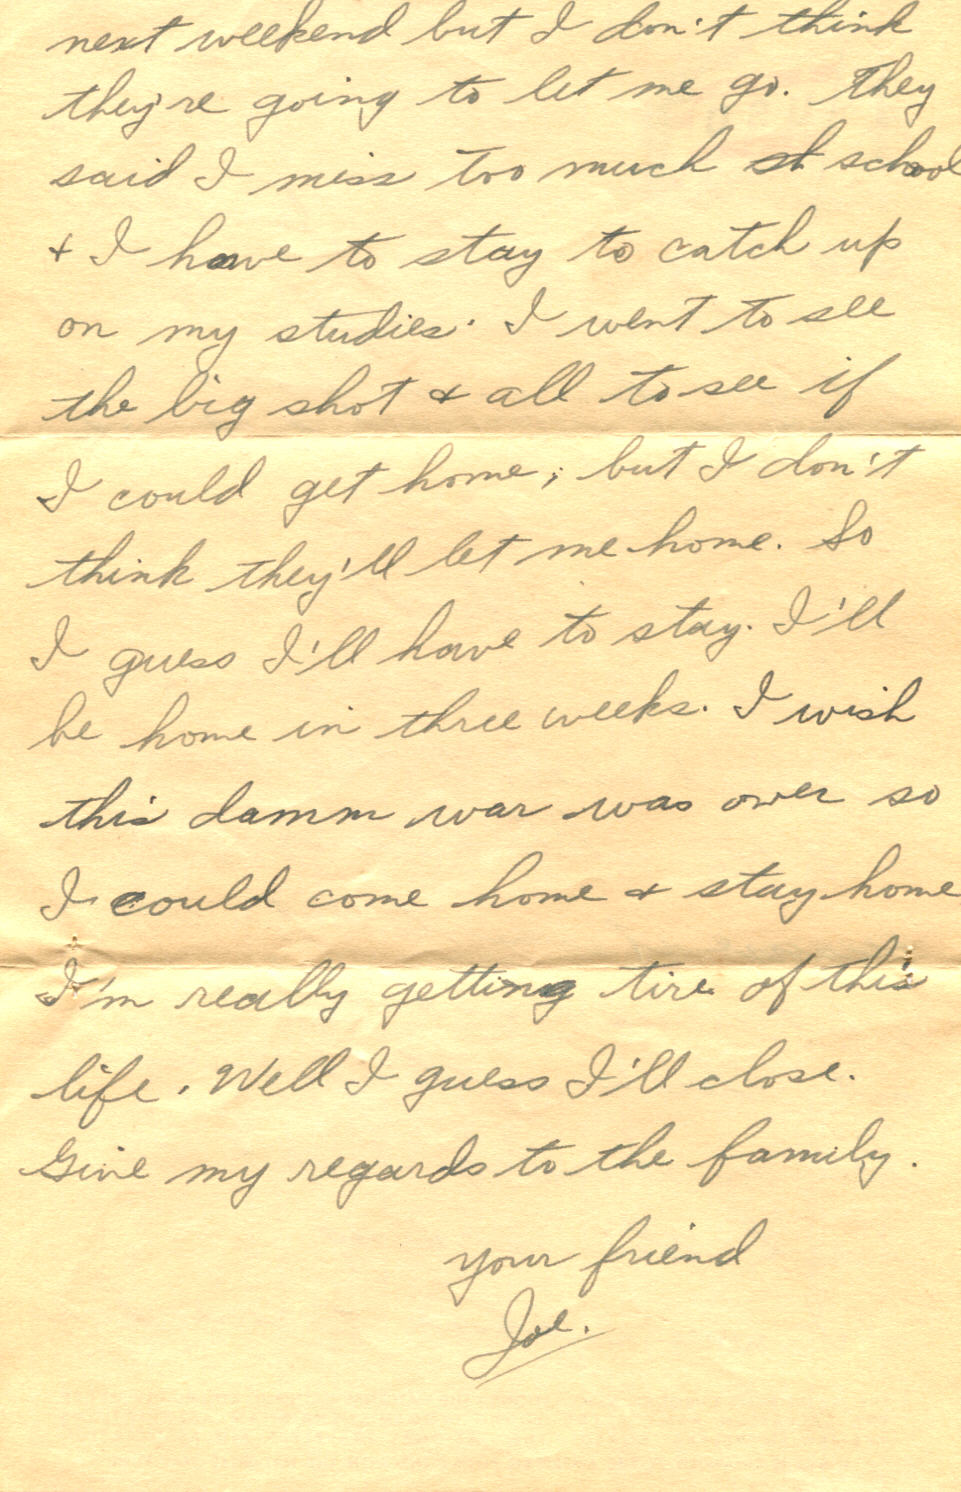 next weekend but I don't think
they're going to let me go. They
said I miss too much sh school
+ I have to stay to catch up
on my studies. I went to see
the big shot + all to see if
I could get home; but I don't
think they'll let me home. So
I guess I'll have to stay. I'll
be home in three weeks. I wish
this damm war was over so
I could come home + stay home
I'm really getting tire of this
life. Well I guess I'll close.
Give my regards to the family.
your friend
Joe.